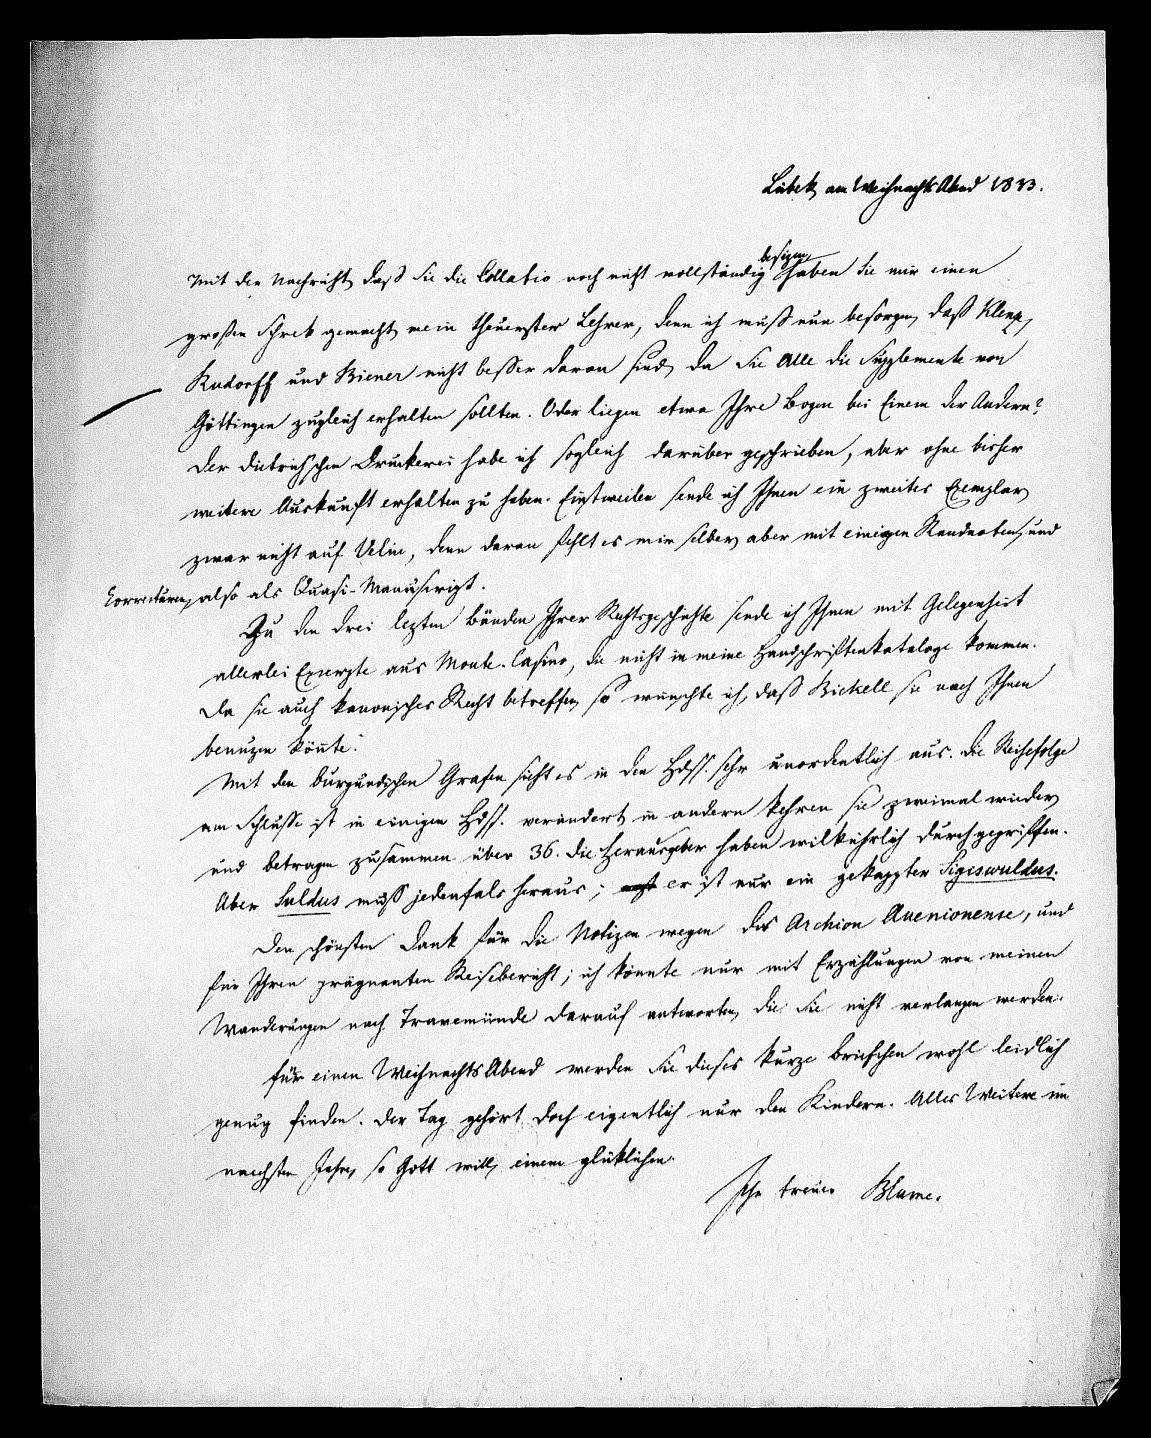 Lübek am WeihnachtsAbend 1833.
Mit der Nachricht, daß Sie die Collatio noch nicht vollständig besizen, haben Sie mir einen
großen Schrek gemacht, mein theuerster Lehrer, denn ich muß nun besorgen, daß Klenze,
Rudorff und Biener nicht besser daran sind, da Sie Alle die Supplemente von
Göttingen zugleich erhalten sollten. Oder liegen etwa Ihre Bogen bei Einem der Andern?
Der Dietrichschen Druckerei habe ich sogleich darüber geschrieben, aber ohne bisher
weitere Auskunft erhalten zu haben. Einstweilen sende ich Ihnen ein zweites Exemplar,
zwar nicht auf Velin, denn daran fehlt es mir selber, aber mit einigen Randnoten, und
Correcturen, also als Quasi-Manuscript.
Zu den drei lezten Bänden Ihrer Rechtsgeschichte sende ich Ihnen mit Gelegenheit
allerlei Excerpte aus Monte-Casino, die nicht in meine Handschriftenkataloge kommen.
Da sie auch kanonisches Recht betreffen, so wünschte ich, daß Bickell sie nach Ihnen
benuzen könnte.
Mit den burgundischen Grafen sieht es in den Hdss. sehr unordentlich aus. Die Reihefolge
am Schlusse ist in einigen Hdss. verändert, in andern kehren sie zweimal wieder,
und betragen zusammen über 36. Die Herausgeber haben wilkührlich durchgegriffen.
Aber Suldus muß jedenfals heraus; er ist nur ein gekappter Sigiswuldus.
Den schönsten Dank für die Notizen wegen des Archion Avenionense, und
für Ihren prägnanten Reisebericht; ich könnte nur mit Erzählungen von meinen
Wanderungen nach Travemünde darauf antworten, die Sie nicht verlangen werden.
Für einen WeihnachtsAbend werden Sie dieses kurze Briefchen wohl leidlich
genug finden. Der Tag gehört doch eigentlich nur den Kindern. Alles Weitere im
nächsten Jahre, so Gott will, einem glüklichen.
Ihr treuer Blume.